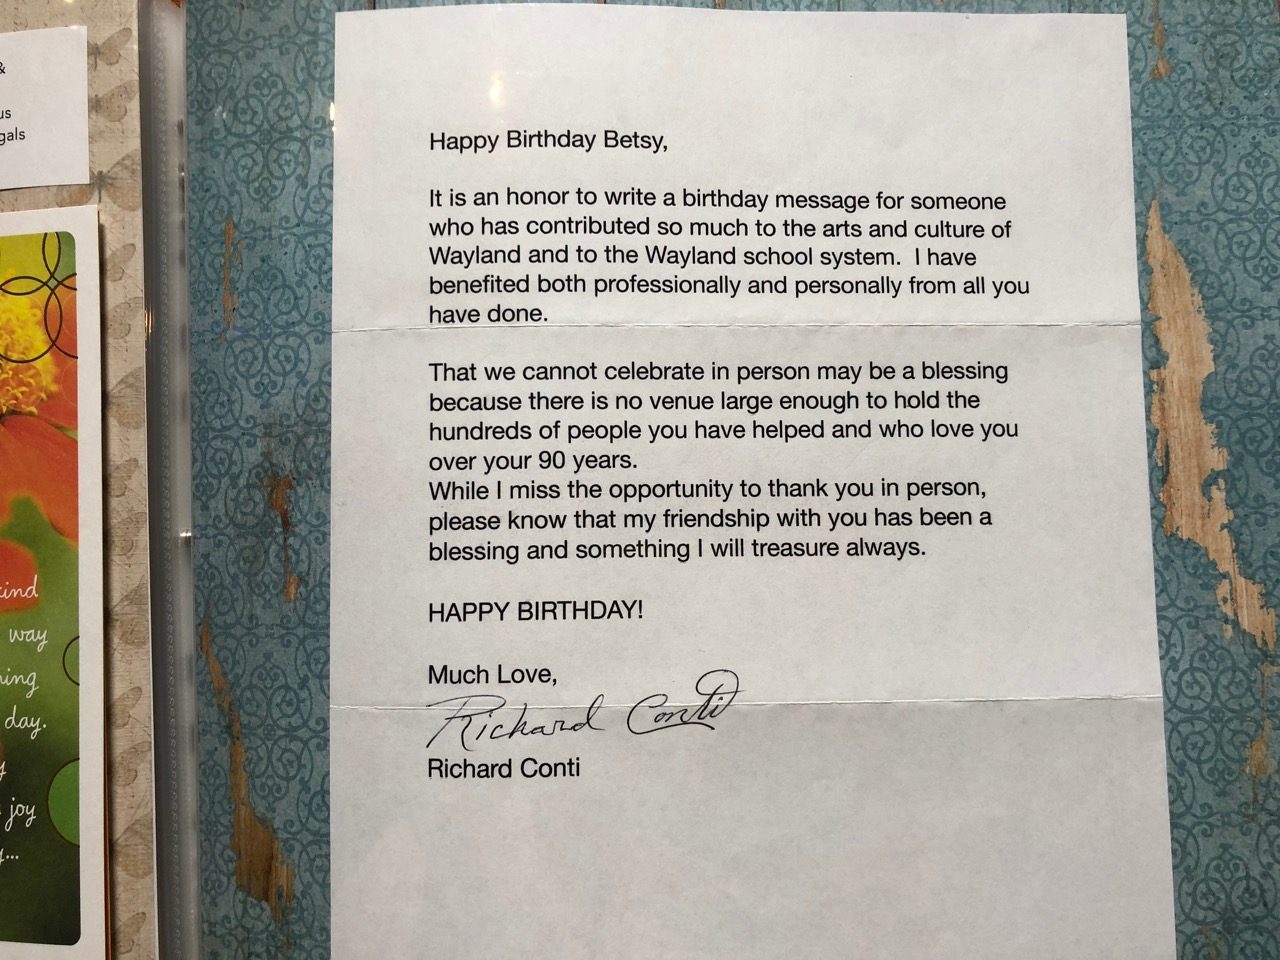 &
us
gals
kind
way
ning
day.
y
joy
y...
Happy Birthday Betsy,
It is an honor to write a birthday message for someone
who has contributed so much to the arts and culture of
Wayland and to the Wayland school system.  I have
benefited both professionally and personally from all you
have done.
That we cannot celebrate in person may be a blessing
because there is no venue large enough to hold the
hundreds of people you have helped and who love you
over your 90 years.
While I miss the opportunity to thank you in person,
please know that my friendship with you has been a
blessing and something I will treasure always.
HAPPY BIRTHDAY!
Much Love,
Richard Conti
Richard Conti